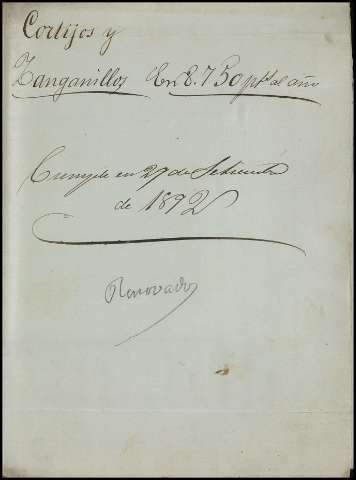 Cortijos y
Zanganillos En 8.750 pts al año
Cumple en 29 de Setiembre
de 1892
Renovados